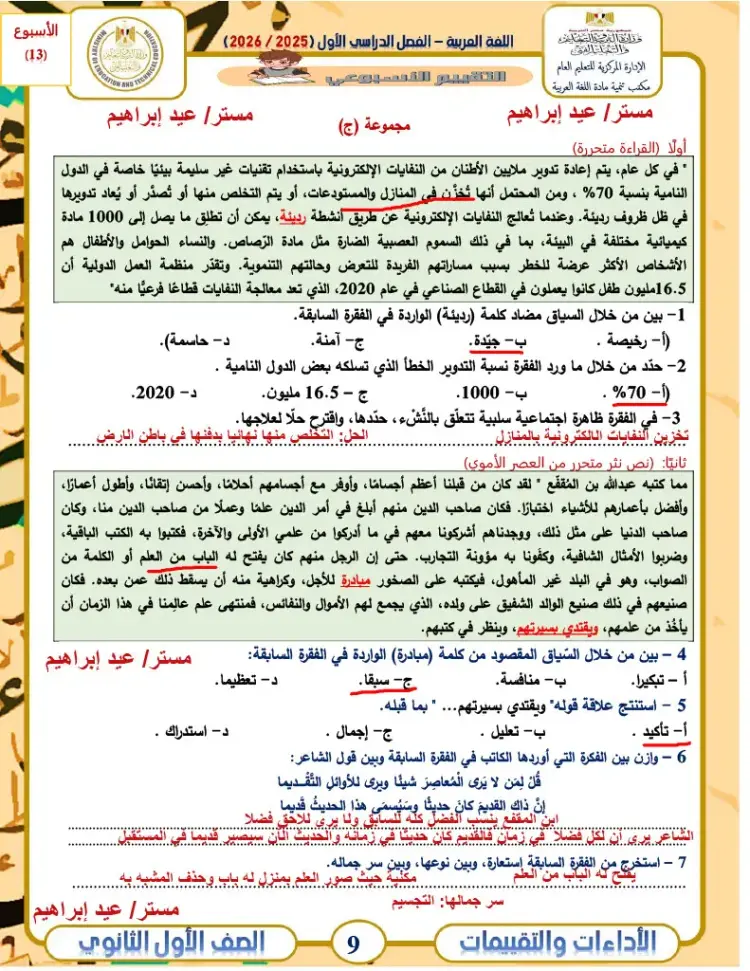 الأسبوع
(13)
MINISTRY OF EDUCATION AND TECHNICAL EDUCATION
اللغة العربية – الفصل الدراسي الأول (2025 / 2026)
التقييم الأسبوعي
الإدارة المركزية للتعليم العام
مكتب تنمية مادة اللغة العربية
مستر/ عيد إبراهيم
مجموعة (ج)
مستر/ عيد إبراهيم
أولًا (القراءة متحررة)
" في كل عام، يتم إعادة تدوير ملايين الأطنان من النفايات الإلكترونية باستخدام تقنيات غير سليمة بيئيًا خاصة في الدول
النامية بنسبة 70% ، ومن المحتمل أنها تُخزَّن في المنازل والمستودعات، أو يتم التخلص منها أو تُصدَّر أو يُعاد تدويرها
في ظل ظروف رديئة. وعندما تُعالج النفايات الإلكترونية عن طريق أنشطة رديئة، يمكن أن تطلق ما يصل إلى 1000 مادة
كيميائية مختلفة في البيئة، بما في ذلك السموم العصبية الضارة مثل مادة الرّصاص. والنساء الحوامل والأطفال هم
الأشخاص الأكثر عرضة للخطر بسبب مساراتهم الفريدة للتعرض وحالتهم التنموية. وتقدّر منظمة العمل الدولية أن
16.5مليون طفل كانوا يعملون في القطاع الصناعي في عام 2020، الذي تعد معالجة النفايات قطاعًا فرعيًّا منه"
1– بين من خلال السياق مضاد كلمة (رديئة) الواردة في الفقرة السابقة.
(أ- رخيصة . ب- جيّدة. ج- آمنة. د- حاسمة).
2– حدّد من خلال ما ورد الفقرة نسبة التدوير الخطأ الذي تسلكه بعض الدول النامية .
(أ- 70% . ب- 1000. ج – 16.5 مليون. د- 2020.
3– في الفقرة ظاهرة اجتماعية سلبية تتعلّق بالنَّشْء، حدّدها، واقترح حلًا لعلاجها.
تخزين النفايات الالكترونية بالمنازل الحل: التخلص منها نهائيا بدفنها في باطن الارض
ثانيًا: (نص نثر متحرر من العصر الأموي)
مما كتبه عبدالله بن المُقفّع " لقد كان من قبلنا أعظم أجسامًا، وأوفر مع أجسامهم أحلامًا، وأحسن إتقانًا، وأطول أعمارًا،
وأفضل بأعمارهم للأشياء اختبارًا. فكان صاحب الدين منهم أبلغ في أمر الدين علمًا وعملًا من صاحب الدين منا، وكان
صاحب الدنيا على مثل ذلك، ووجدناهم أشركونا معهم في ما أدركوا من علمي الأولى والآخرة، فكتبوا به الكتب الباقية،
وضربوا الأمثال الشافية، وكفَونا به مؤونة التجارب. حتى إن الرجل منهم كان يفتح له الباب من العلم أو الكلمة من
الصواب، وهو في البلد غير المأهول، فيكتبه على الصخور مبادرة للأجل، وكراهية منه أن يسقط ذلك عمن بعده. فكان
صنيعهم في ذلك صنيع الوالد الشفيق على ولده، الذي يجمع لهم الأموال والنفائس، فمنتهى علم عالِمنا في هذا الزمان أن
يأخُذ من علمهم، ويقتدي بسيرتهم، وينظر في كتبهم.
4 – بين من خلال السّياق المقصود من كلمة (مبادرة) الواردة في الفقرة السابقة:
مستر/ عيد إبراهيم
أ – تبكيرا. ب- منافسة. ج- سبقا. د- تعظيما.
5 – استنتج علاقة قوله" ويقتدي بسيرتهم... " بما قبله.
أ- تأكيد . ب- تعليل . ج- إجمال . د- استدراك .
6 – وازن بين الفكرة التي أوردها الكاتب في الفقرة السابقة وبين قول الشاعر:
قُلْ لِمَن لا يَرى الْمُعاصِرَ شيئًا ويرى للأوائلِ التَّقْديما
إنَّ ذاك القديمَ كان حديثًا وسَيُسمَى هذا الحديثُ قديما
ابن المقفع ينسب الفضل كله للسابق ولا يري للاحق فضلا
الشاعر يري ان لكل فضلا في زمان فالقديم كان حديثا في زمانه والحديث الان سيصير قديما في المستقبل
7 – استخرج من الفقرة السابقة إستعارة، وبين نوعها، وبين سر جماله.
يفتح له الباب من العلم مكنية حيث صور العلم بمنزل له باب وحذف المشبه به
سر جمالها: التجسيم
مستر/ عيد إبراهيم
الأداءات والتقييمات
9
الصف الأول الثانوي